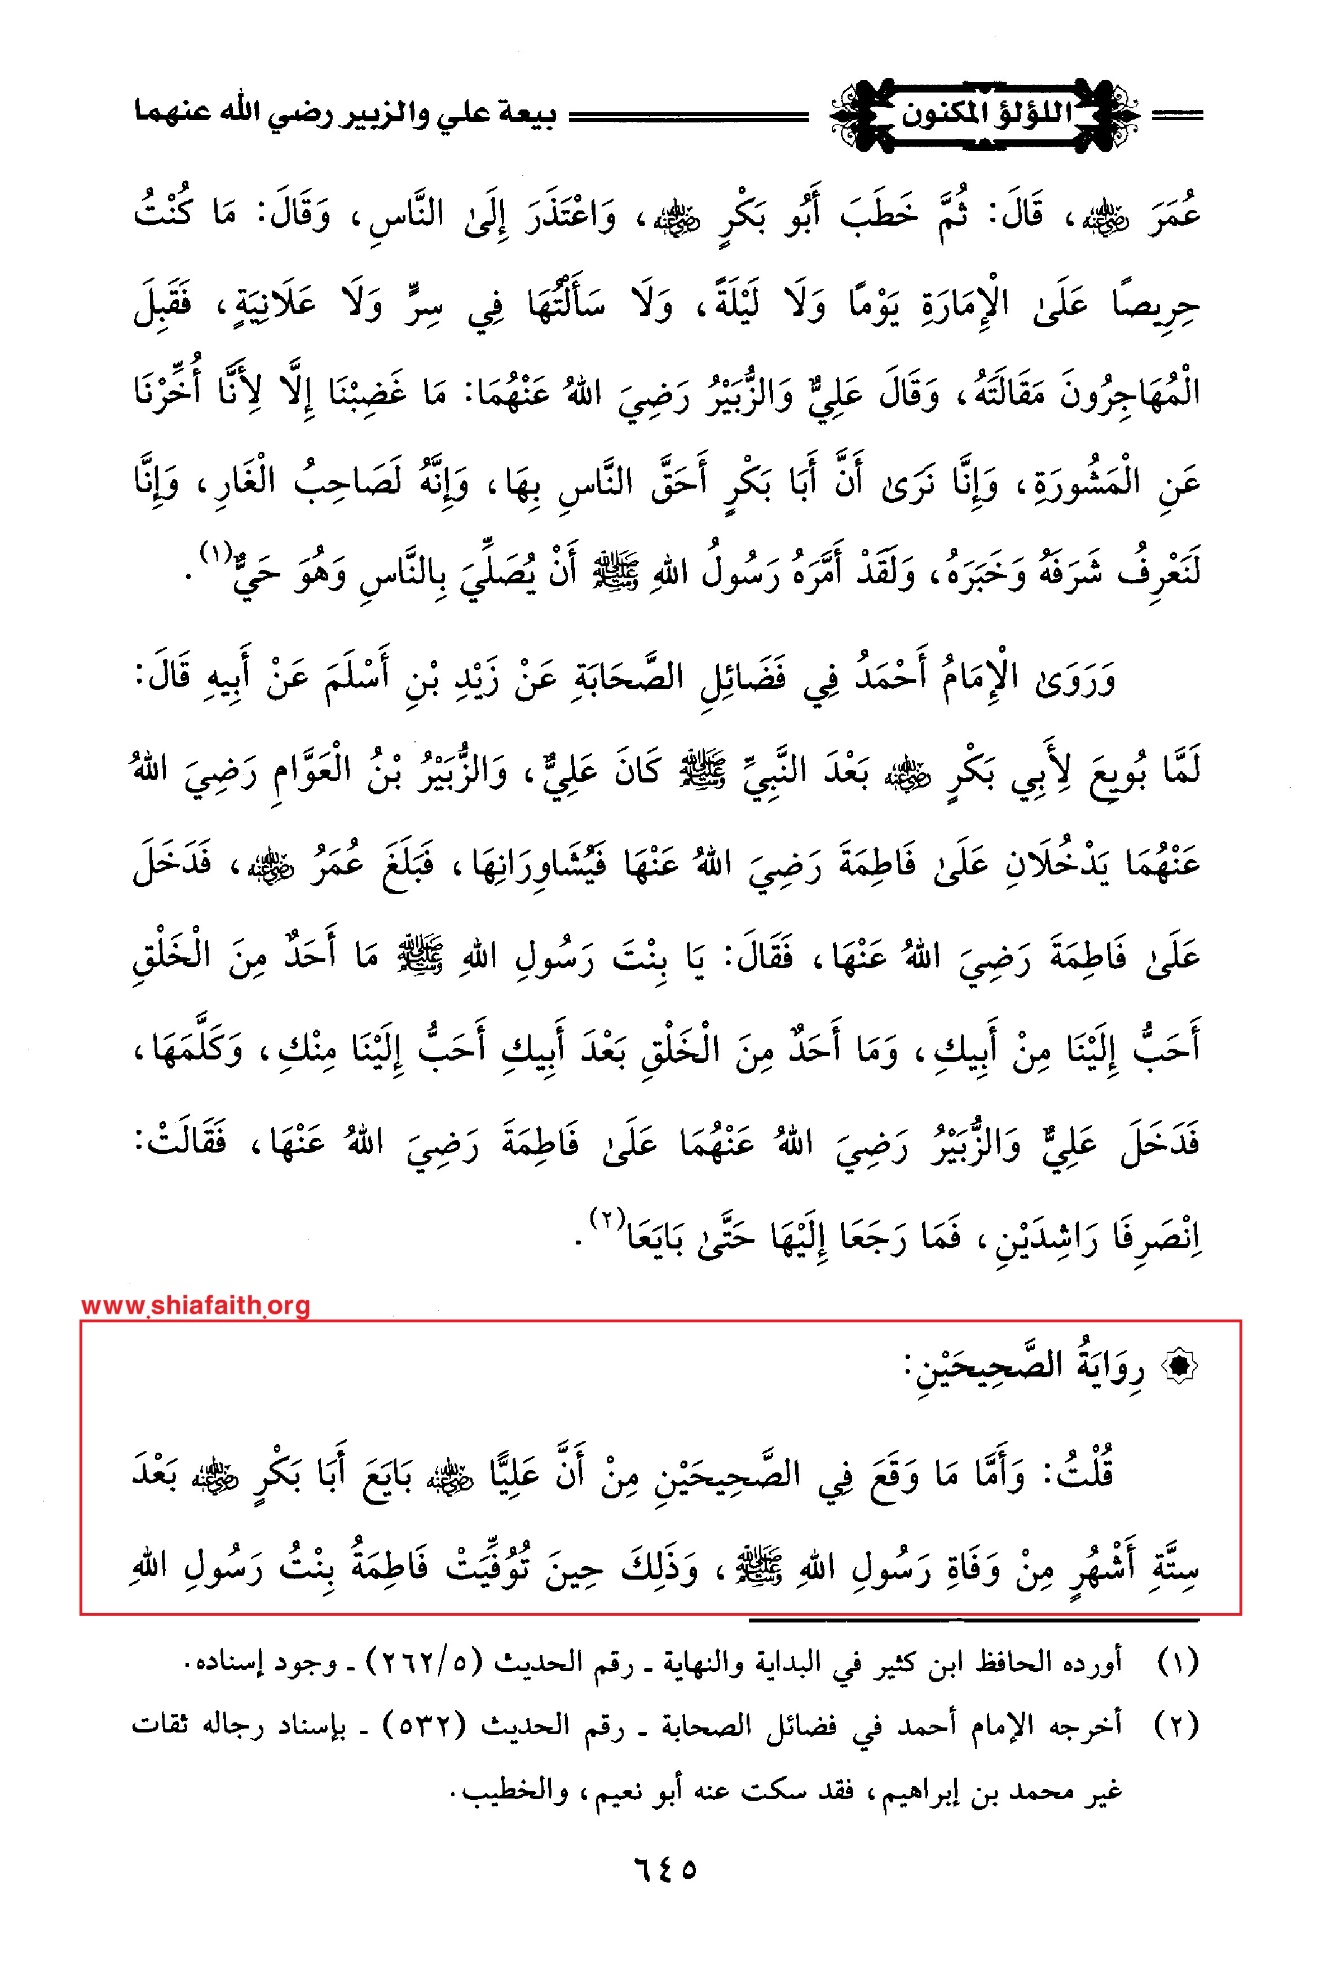 اللؤلؤ المكنون بيعة علي والزبير رضي الله عنهما
عُمَرَ رضي الله عنه، قَالَ: ثُمَّ خَطَبَ أَبُو بَكْرٍ رضي الله عنه، وَاعْتَذَرَ إِلَىٰ النَّاسِ، وَقَالَ: مَا كُنْتُ
حِرِيصًا عَلَىٰ الْإِمَارَةِ يَوْمًا وَلَا لَيْلَةً، وَلَا سَأَلْتُهَا فِي سِرٍّ وَلَا عَلَانِيَةٍ، فَقَبِلَ
الْمُهَاجِرُونَ مَقَالَتَهُ، وَقَالَ عَلِيٌّ وَالزُّبَيْرُ رَضِيَ اللهُ عَنْهُمَا: مَا غَضِبْنَا إِلَّا لِأَنَّا أُخِّرْنَا
عَنِ الْمَشُورَةِ، وَإِنَّا نَرَىٰ أَنَّ أَبَا بَكْرٍ أَحَقَّ النَّاسِ بِهَا، وَإِنَّهُ لَصَاحِبُ الْغَارِ، وَإِنَّا
لَنَعْرِفُ شَرَفَهُ وَخَبَرَهُ، وَلَقَدْ أَمَّرَهُ رَسُولُ اللهِ ﷺ أَنْ يُصَلِّيَ بِالنَّاسِ وَهُوَ حَيٌّ(١).
وَرَوَىٰ الْإِمَامُ أَحْمَدُ فِي فَضَائِلِ الصَّحَابَةِ عَنْ زَيْدِ بْنِ أَسْلَمَ عَنْ أَبِيهِ قَالَ:
لَمَّا بُويِعَ لِأَبِي بَكْرٍ رضي الله عنه بَعْدَ النَّبِيِّ ﷺ كَانَ عَلِيٌّ، وَالزُّبَيْرُ بْنُ الْعَوَّامِ رَضِيَ اللهُ
عَنْهُمَا يَدْخُلَانِ عَلَىٰ فَاطِمَةَ رَضِيَ اللهُ عَنْهَا فَيُشَاوِرَانِهَا، فَبَلَغَ عُمَرُ رضي الله عنه، فَدَخَلَ
عَلَىٰ فَاطِمَةَ رَضِيَ اللهُ عَنْهَا، فَقَالَ: يَا بِنْتَ رَسُولِ اللهِ ﷺ مَا أَحَدٌ مِنَ الْخَلْقِ
أَحَبُّ إِلَيْنَا مِنْ أَبِيكِ، وَمَا أَحَدٌ مِنَ الْخَلْقِ بَعْدَ أَبِيكِ أَحَبُّ إِلَيْنَا مِنْكِ، وَكَلَّمَهَا،
فَدَخَلَ عَلِيٌّ وَالزُّبَيْرُ رَضِيَ اللهُ عَنْهُمَا عَلَىٰ فَاطِمَةَ رَضِيَ اللهُ عَنْهَا، فَقَالَتْ:
اِنْصَرِفَا رَاشِدَيْنِ، فَمَا رَجَعَا إِلَيْهَا حَتَّىٰ بَايَعَا(٢).
www.shiafaith.org
رِوَايَةُ الصَّحِيحَيْنِ:
قُلْتُ: وَأَمَّا مَا وَقَعَ فِي الصَّحِيحَيْنِ مِنْ أَنَّ عَلِيًّا رضي الله عنه بَايَعَ أَبَا بَكْرٍ رضي الله عنه بَعْدَ
سِتَّةِ أَشْهُرٍ مِنْ وَفَاةِ رَسُولِ اللهِ ﷺ، وَذَلِكَ حِينَ تُوُفِّيَتْ فَاطِمَةُ بِنْتُ رَسُولِ اللهِ
(١) أورده الحافظ ابن كثير في البداية والنهاية ـ رقم الحديث (٢٦٢/٥) ـ وجود إسناده.
(٢) أخرجه الإمام أحمد في فضائل الصحابة ـ رقم الحديث (٥٣٢) ـ بإسناد رجاله ثقات
غير محمد بن إبراهيم، فقد سكت عنه أبو نعيم، والخطيب.
٦٤٥